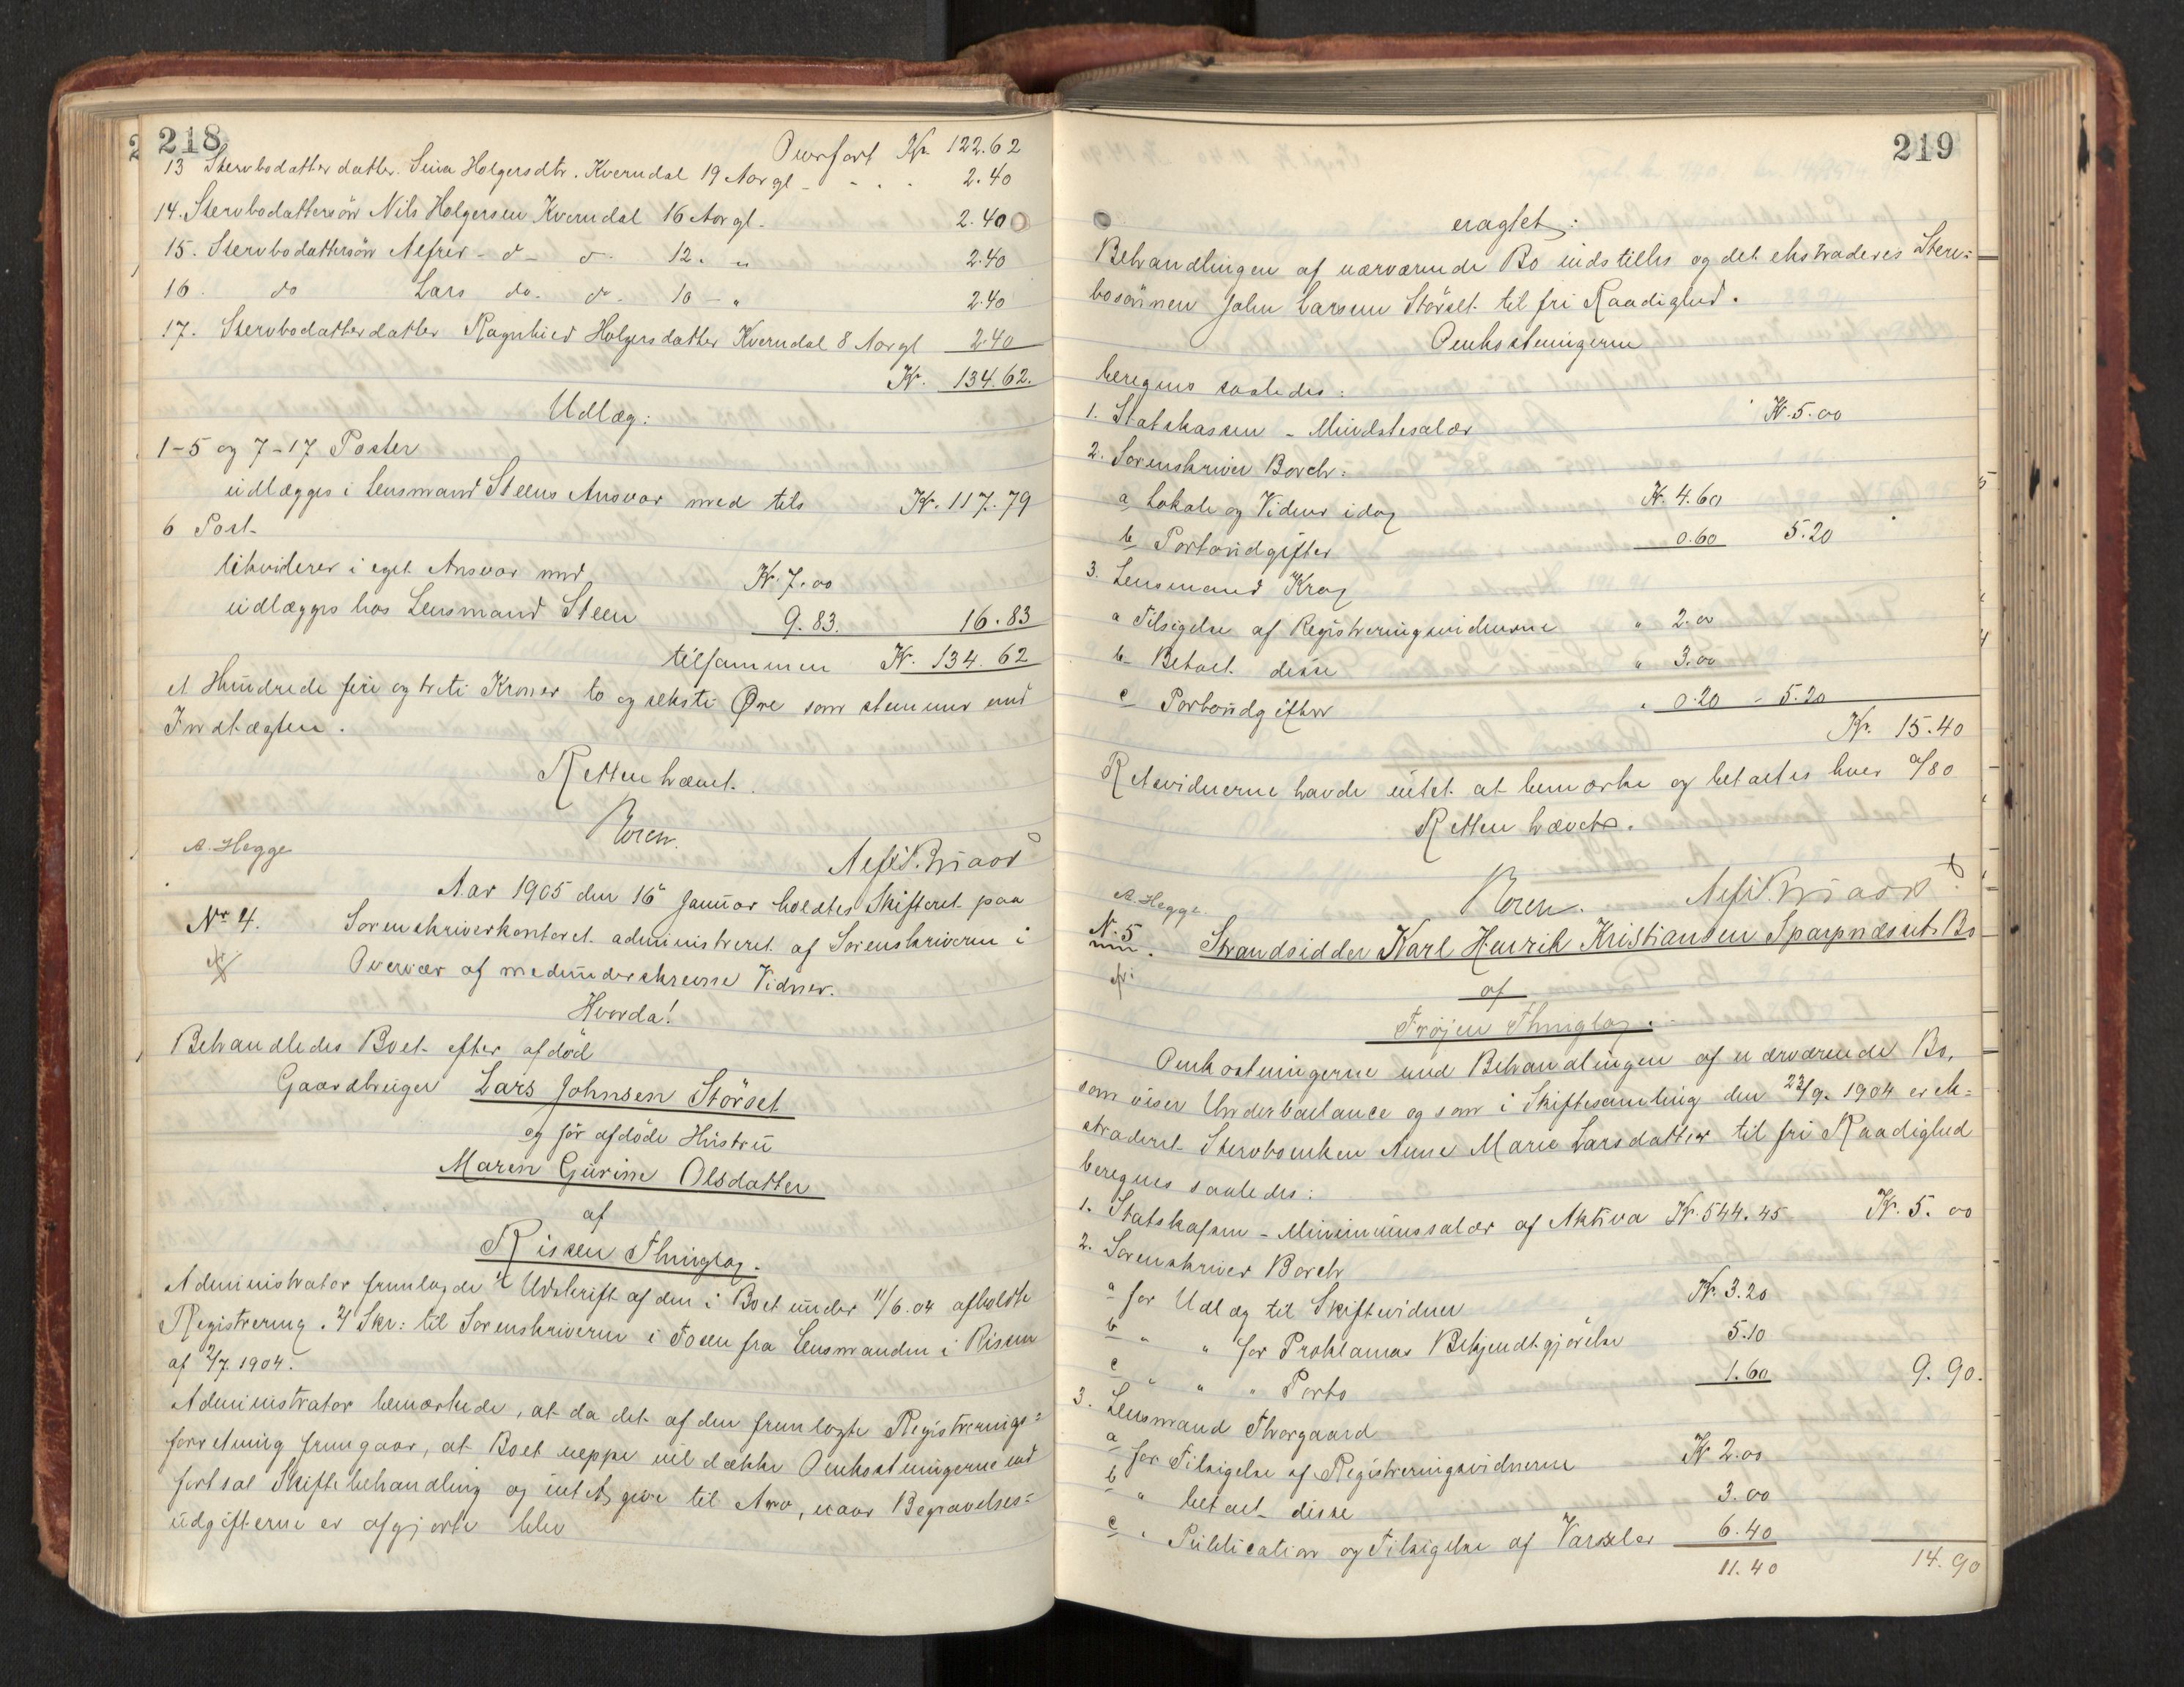 218
Overført Kr. 122.62
13 Stervbodatterdatter Sina Holgersdtr. Kverndal 19 Aar gl - - . . 2.40
14. Stervbodattersøn Nils Holgersen Kverndal 16 Aar gl. 2.40
15. Stervbodattersøn Alfred - do - do - 12. " 2.40
16. do Lars do. do. 10 - " 2.40
17. Stervbodatterdatter Ragnhild Holgersdatter Kverndal 8 Aar gl 2.40
Kr. 134.62.
Udlæg:
1-5 og 7-17 Poster
udlægges i Lensmand Steens Ansvar med tils Kr. 117.79
6 Post.
likviderer i eget Ansvar med Kr. 7.00
udlægges hos Lensmand Steen 9.83. 16.83
tilsammen Kr. 134.62
et Hundrede fire og treti Kroner to og seksti Øre som stemmer med
Indtægten.
Retten hævet.
Borch.
A. Hegge
Aar 1905 den 16 Januar holdtes Skifteret paa
No 4. Sorenskriverkontoret administreret af Sorenskriveren i
Overvær af medunderskrevne Vidner.
Hvorda!
Behandledes Boet efter afdød
Gaardbruger Lars Johnsen Störset
og før afdøde Hustru
Maren Gurine Olsdatter
af
Rissen Thinglag.
Administrator fremlagde 1 Udskrift af den i Boet under 11/6.04 afholdte
Registrering. 2 Skr: til Sorenskriveren i Fosen fra Lensmanden i Rissen
af 2/7 1904.
Administrator bemærkede, at da det af den fremlagte Registrerings=
forretning fremgaar, at Boet neppe vil dække Omkostningerne ved
fortsat Skiftebehandling og intet give til Arv, naar Begravelses=
udgifterne er afgjorte blev
219
eragtet:
Behandlingen af nærværende Bo indstilles og det ekstraderes Sterv=
bosønnen John Larsen Störset til fri Raadighed.
Omkostningerne
beregnes saaledes:
1. Statskassen - Mindstesalær Kr. 5.00
2. Sorenskriver Borch:
a Lokale og Vidner idag Kr. 4.60
b Portoudgifter 0.60 5.20
3. Lensmand Krog
a Tilsigelse af Registreringsvidnerne " 2.00
b Betalt disse " 3.00
c Portoudgifter " 0.20 - 5.20
Kr. 15.40
Retsvidnerne havde intet at bemærke og betaltes hver 0/80
Retten hævet.
Borch.
A. Hegge.
N. 5. Strandsidder Karl Henrik Kristiansen Bo
af
Frøjen Thinglag.
Omkostningerne med Behandlingen af nærværende Bo,
som viser Underballance og som i Skiftesamling den 23/9. 1904 er ek=
straderet Stervboenken Anne Marie Larsdatter til fri Raadighed
beregnes saaledes:
1. Statskassen - Minimumssalær af Aktiva Kr. 544.45 Kr. 5.00
2. Sorenskriver Borch
a for Udlæg til Skiftevidner Kr. 3.20
b " " for Proklamas Bekjendtgjørelse 5.10
c " " " Porto 1.60 9.90.
3. Lensmand Thorgaard
a for Tilsigelse af Registreringsvidnerne Kr 2.00
b " betalt disse 3.00
c " Publication og Tilsigelse af Varsler 6.40
11.40 14.90